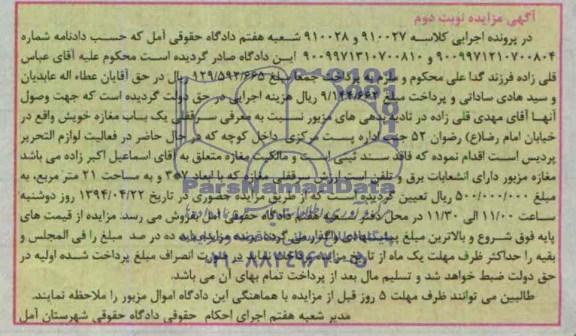 آگهی مزایده نوبت دوم
در پرونده اجرایی کلاسه ۹۱۰۰۲۷ و ۹۱۰۰۲۸ شعبه هفتم دادگاه حقوقی آمل که حسب دادنامه شماره
۹۰۰۹۹۷۱۲۱۰۷۰۰۸۰۴ و ۹۰۰۹۹۷۱۳۱۰۷۰۰۸۱۰ این دادگاه صادر گردیده است محکوم علیه آقای عباس
قلی زاده فرزند گدا علی محکوم و ملزم به پرداخت جمعا مبلغ ۱۲۹/۵۹۳/۶۶۵ ریال در حق آقایان عطاء اله عابدیان
و سید هادی ساداتی و پرداخت مبلغ ریال هزینه اجرایی در حق دولت گردیده است که جهت وصول
آنها آقای مهدی قلی زاده در تادیه بدهی های مزبور نسبت به معرفی سرقفلی یک باب مغازه خویش واقع در
خیابان امام رضا(ع) رضوان ۵۲ جنب اداره پست مرکزی داخل کوچه که در حال حاضر در فعالیت لوازم التحریر
پردیس است اقدام نموده که فاقد سند ثبتی است و مالکیت مغازه متعلق به آقای اسماعیل اکبر زاده می باشد
مغازه مزبور دارای انشعابات برق و تلفن است ارزش سرقفلی مغازه که با ابعاد ۷*۳ و به مساحت ۲۱ متر مربع، به
مبلغ ۵۰۰/۰۰۰/۰۰۰ ریال تعیین گردیده است که از طریق مزایده حضوری در تاریخ ۱۳۹۴/۰۴/۲۲ روز دوشنبه
ساعت ۱۱/۰۰ الی ۱۱/۳۰ در محل دفتر شعبه هفتم دادگاه حقوقی آمل بفروش می رسد. مزایده از قیمت های
پایه فوق شروع و بالاترین مبلغ پیشنهادی واگذار می گردد برنده مزایده باید ده در صد مبلغ را فی المجلس و
بقیه را حداکثر ظرف مهلت یک ماه از تاریخ مزایده پرداخت نماید در صورت انصراف مبلغ پرداخت شده اولیه در
حق دولت ضبط خواهد شد و تسلیم مال بعد از پرداخت تمام بهای آن می باشد.
طالبین می توانند ظرف مهلت ۵ روز قبل از مزایده با هماهنگی این دادگاه اموال مزبور را ملاحظه نمایند.
مدیر شعبه هفتم اجرای احکام حقوقی دادگاه حقوقی شهرستان آمل
ParsNamadData
۰۲۱-۸۸۳۴۹۶۷۰-۵